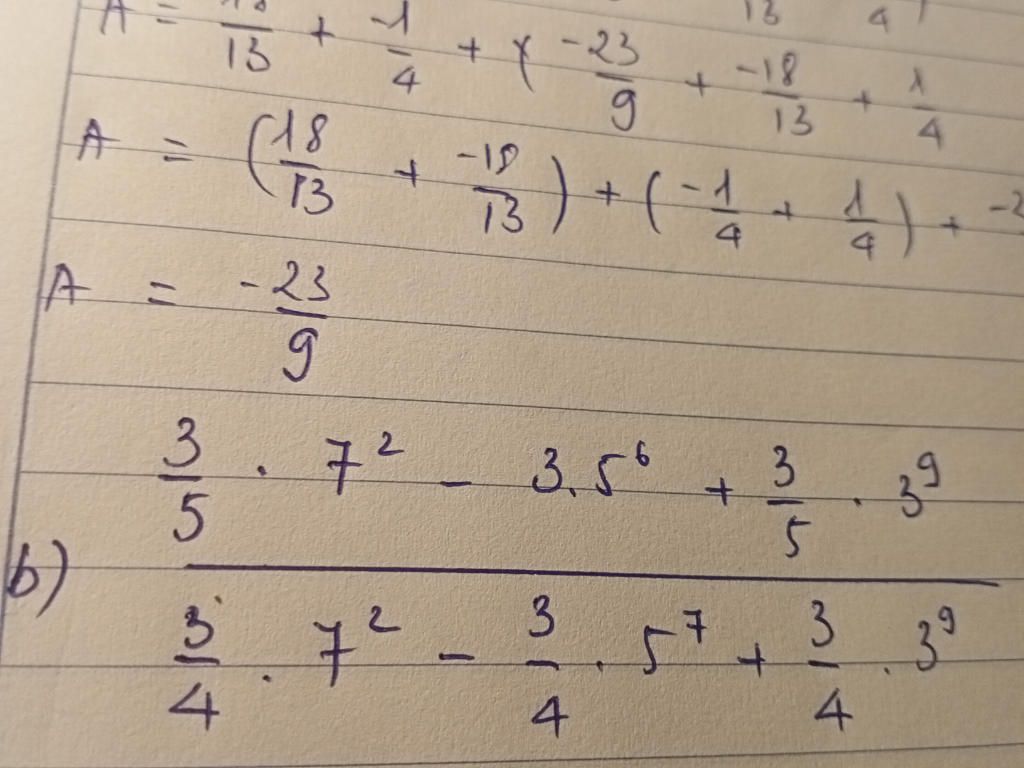 13 4
A = 18/13 + -1/4 + ( -23/9 + -18/13 + 1/4
A = (18/13 + -18/13) + (-1/4 + 1/4) + -2
A = -23/9
b) (3/5 . 7² - 3.5⁶ + 3/5 . 3⁹)/(3/4 . 7² - 3/4 . 5⁷ + 3/4 . 3⁹)